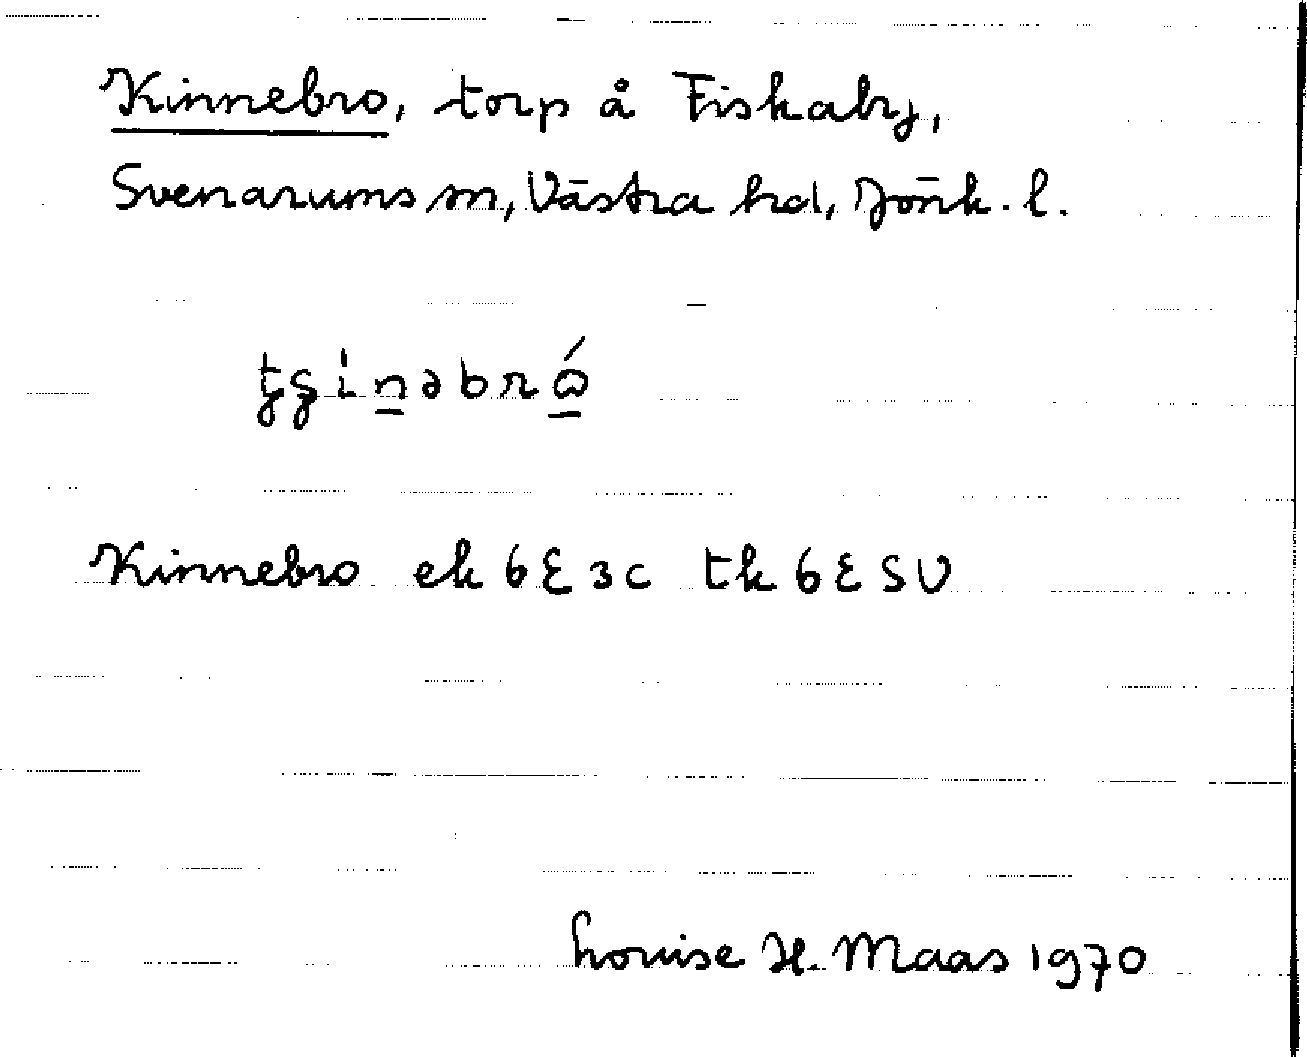 Kinnebro, torp å Fiskaby,
Svenarums sn, Västra hd, Jönk. l.
Kinnebro ek 6E3c tk 6ESV
Louise H. Maas 1970